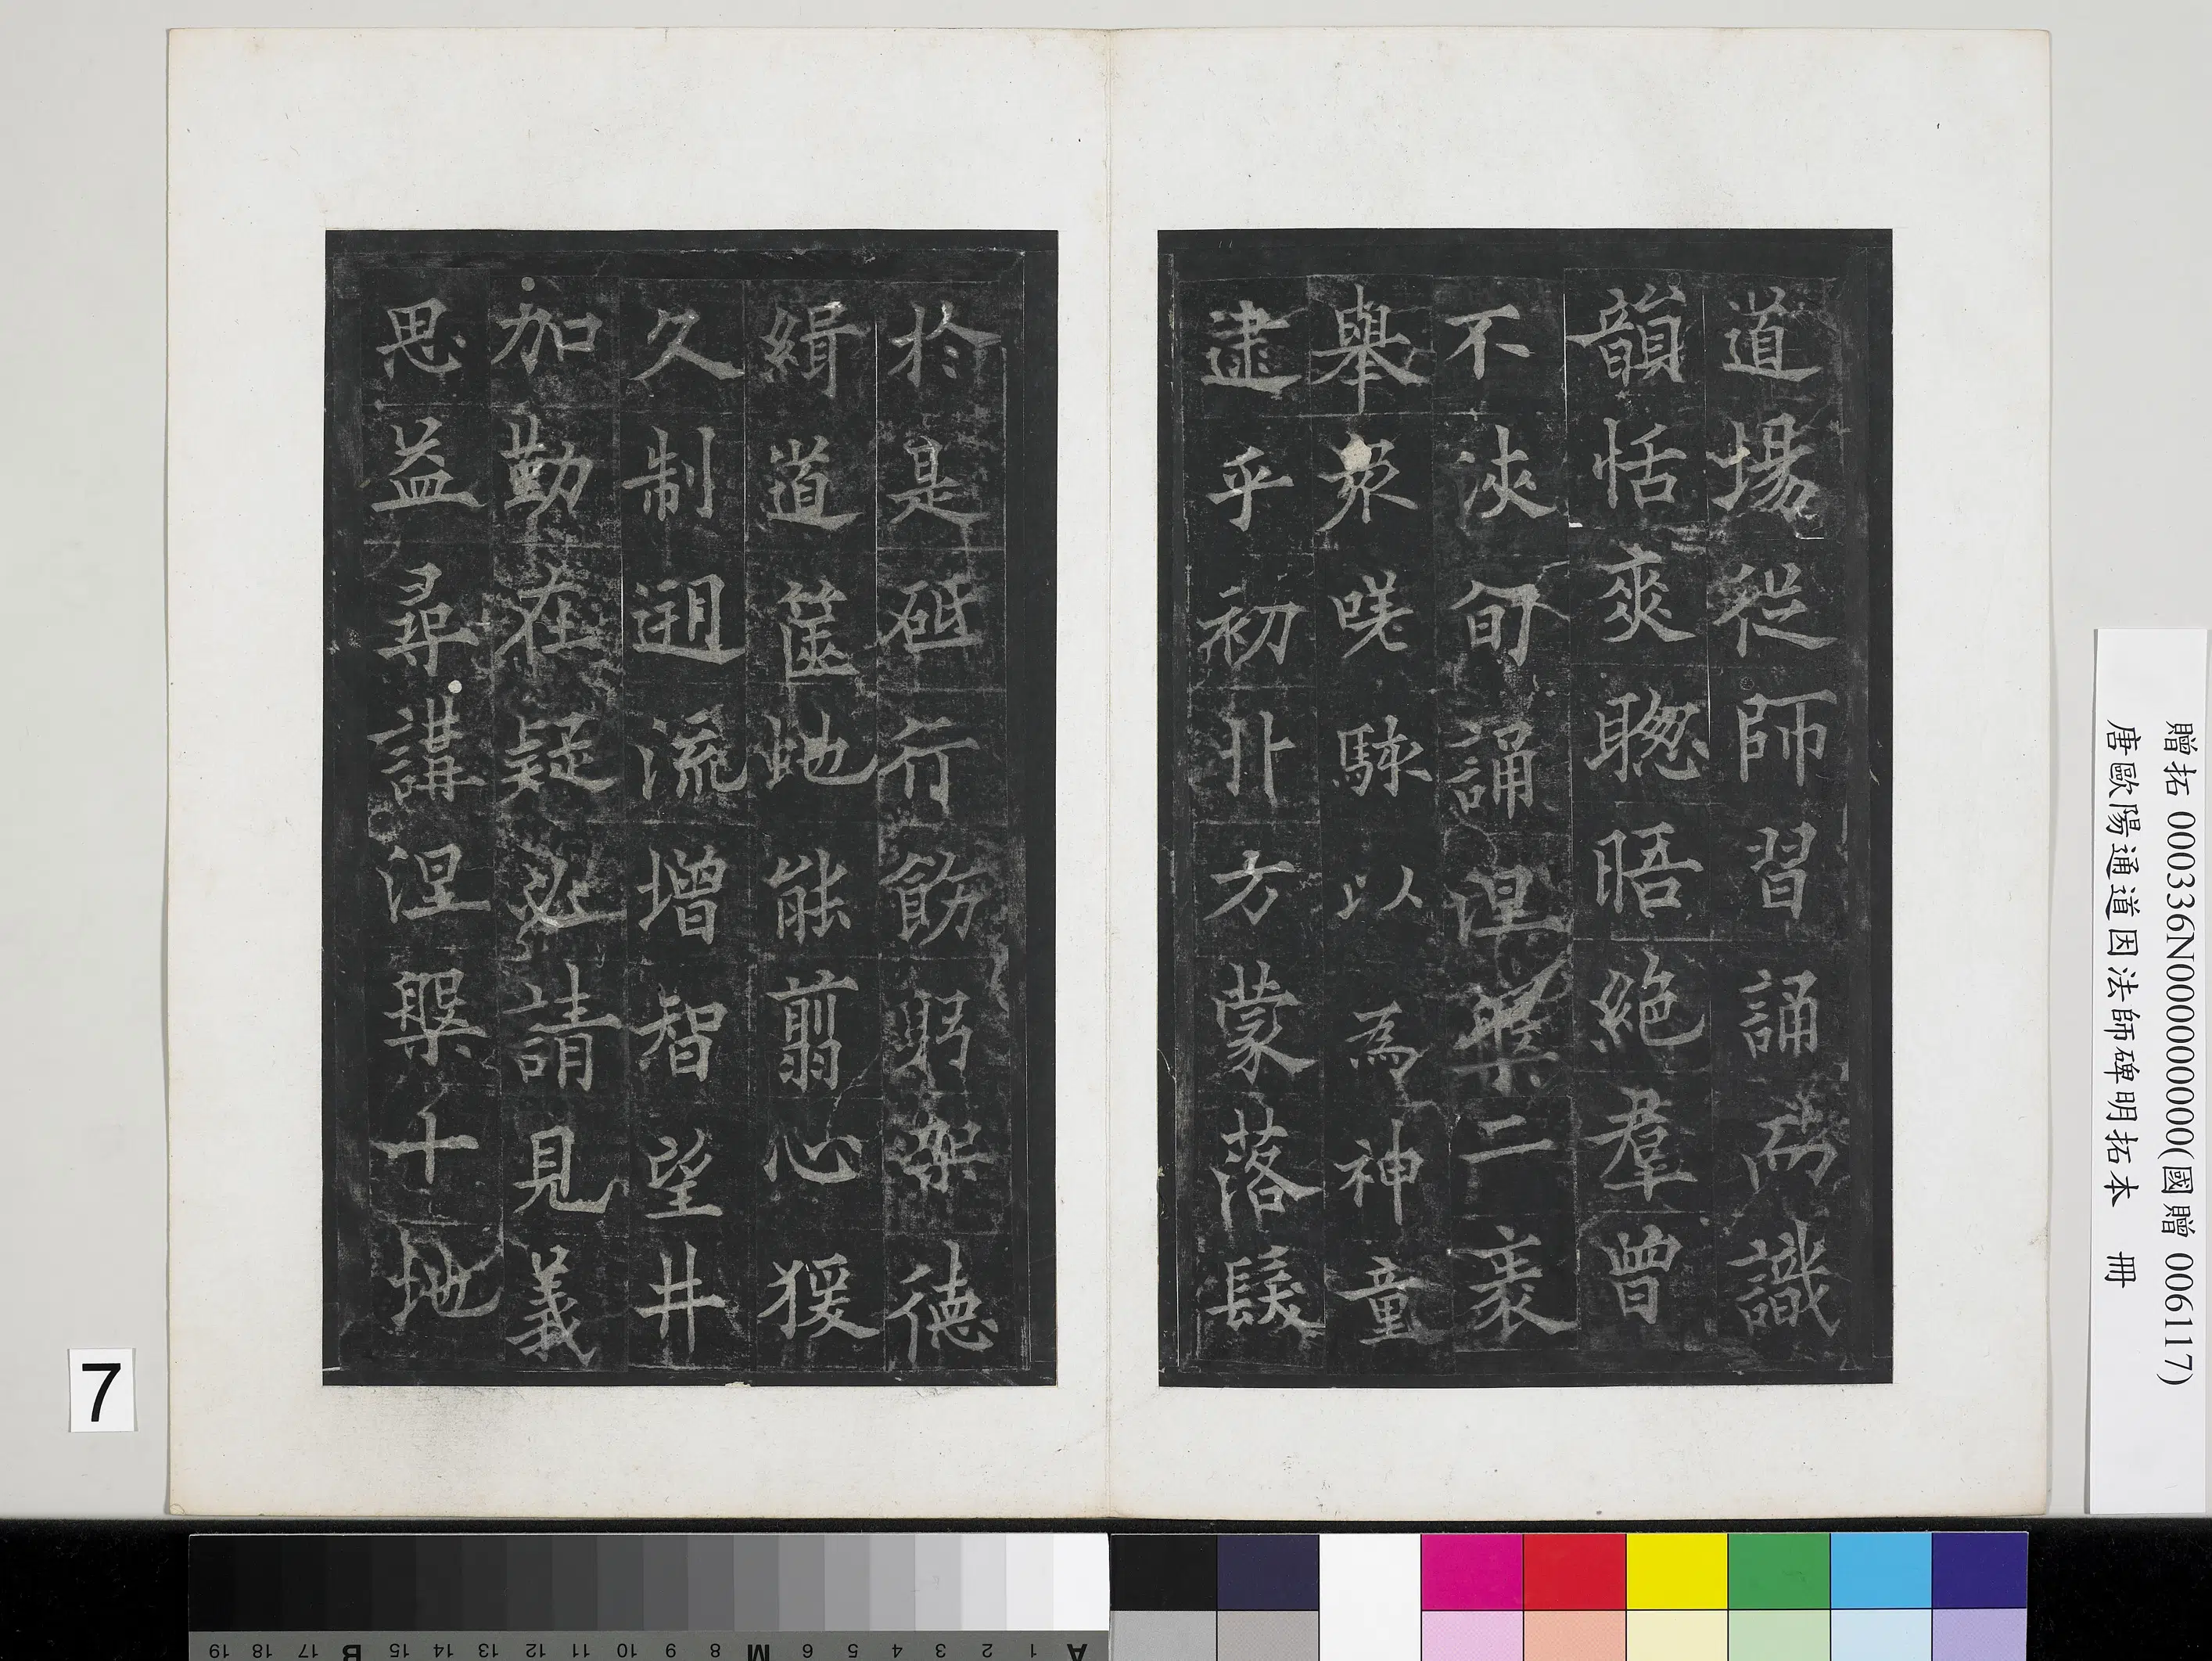 道場從師習誦而識
韻恬爽聦晤絕羣曾
不浹旬誦涅槃二袠
舉衆嗟駭以為神童
逮乎初丱方蒙落髮
於是砥行飭躬架德
緝道篋虵能翦心猨
久制遡流增智望井
加勤在疑必請見義
思益尋講涅槃十地
贈拓 000336N000000000(國贈 006117)
唐歐陽通道因法師碑明拓本 冊
7
19 18 17 B 15 14 13 12 11 10 9 8 M 6 5 4 3 2 1 A